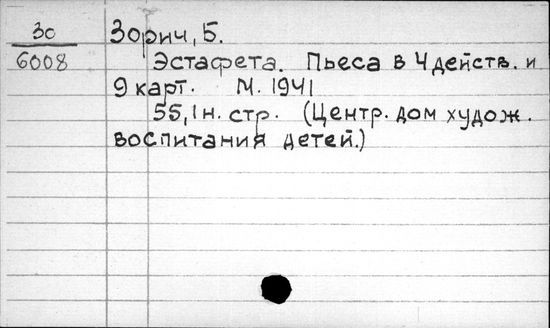 Зо
6008
Зорич, Б.
Эстафета. Пьеса в 4 действ. и
9 карт. М. 1941
55, 1 н. стр. (Центр. дом худож.
воспитания детей.)